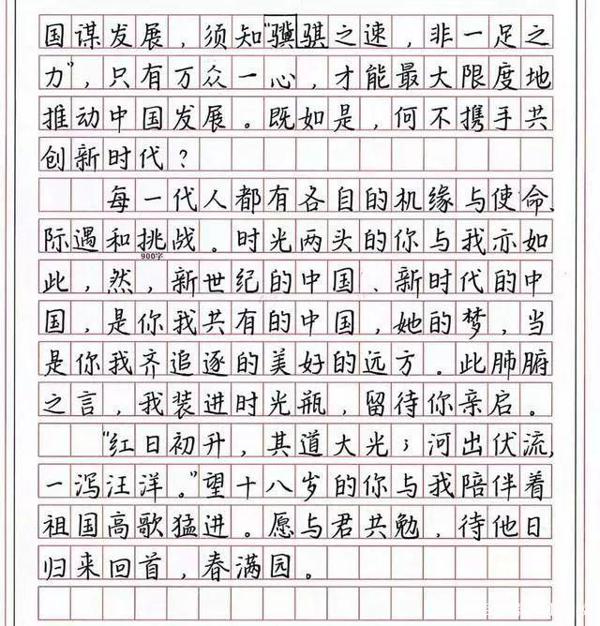 国谋发展，须知“骥骐之速，非一足之
力”，只有万众一心，才能最大限度地
推动中国发展。既如是，何不携手共
创新时代？
每一代人都有各自的机缘与使命、
际遇和挑战。时光两头的你与我亦如
900字
此，然，新世纪的中国、新时代的中
国，是你我共有的中国，她的梦，当
是你我齐追逐的美好的远方。此肺腑
之言，我装进时光瓶，留待你亲启。
“红日初升，其道大光；河出伏流，
一泻汪洋。”望十八岁的你与我陪伴着
祖国高歌猛进。愿与君共勉，待他日
归来回首，春满园。